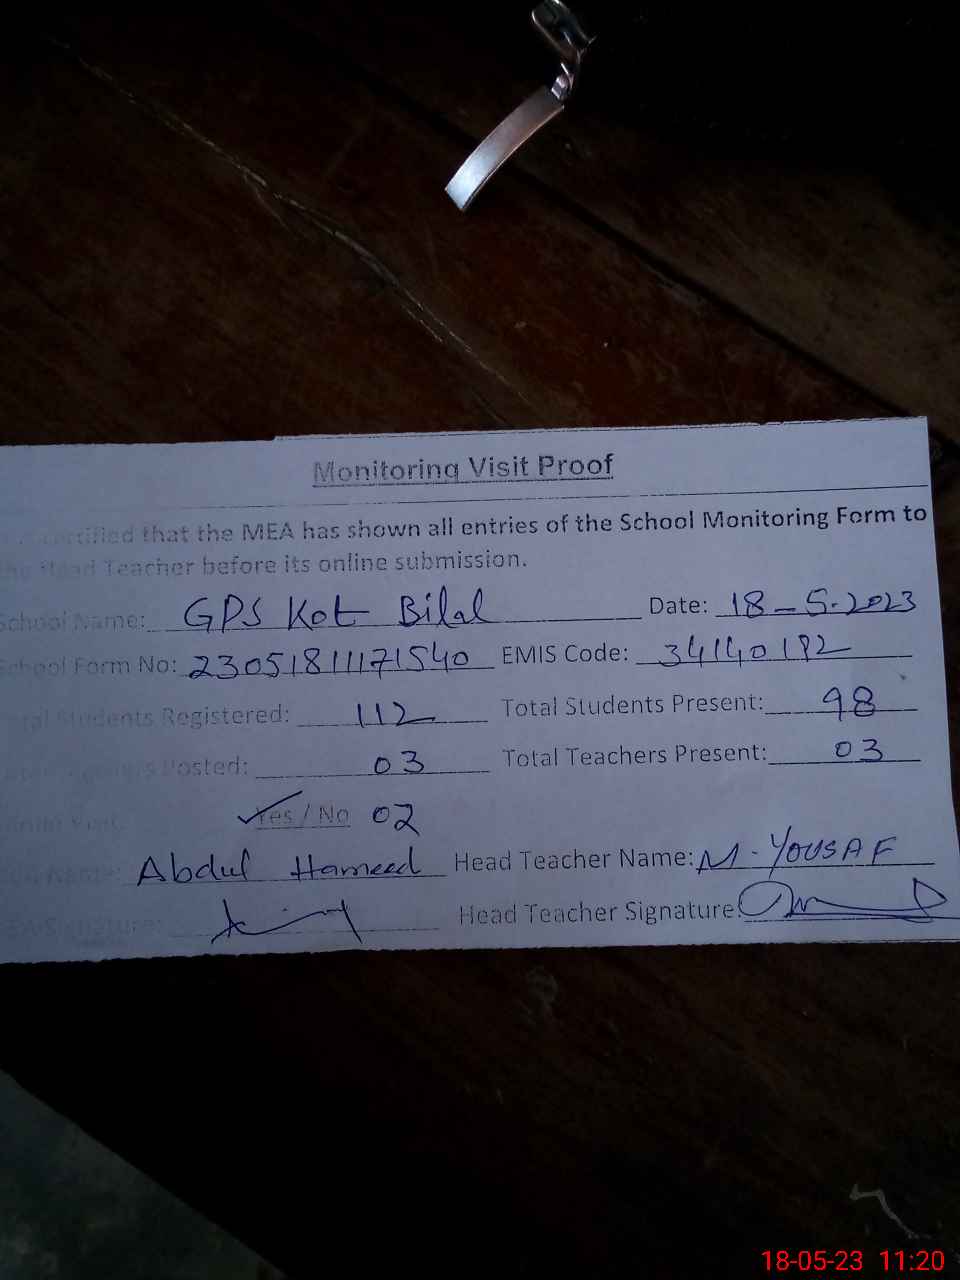 Monitoring Visit Proof
certified that the MEA has shown all entries of the School Monitoring Form to
the Head Teacher before its online submission.
School Name: GPS Kot Bilal Date: 18-5-2023
School Form No: 23051811171540 EMIS Code: 34140192
Total Students Registered: 112 Total Students Present: 98
Posted: 03 Total Teachers Present: 03
Visit: Yes / No 02
Name: Abdul Hameed Head Teacher Name: M. YOUSAF
Signature: Head Teacher Signature:
18-05-23 11:20